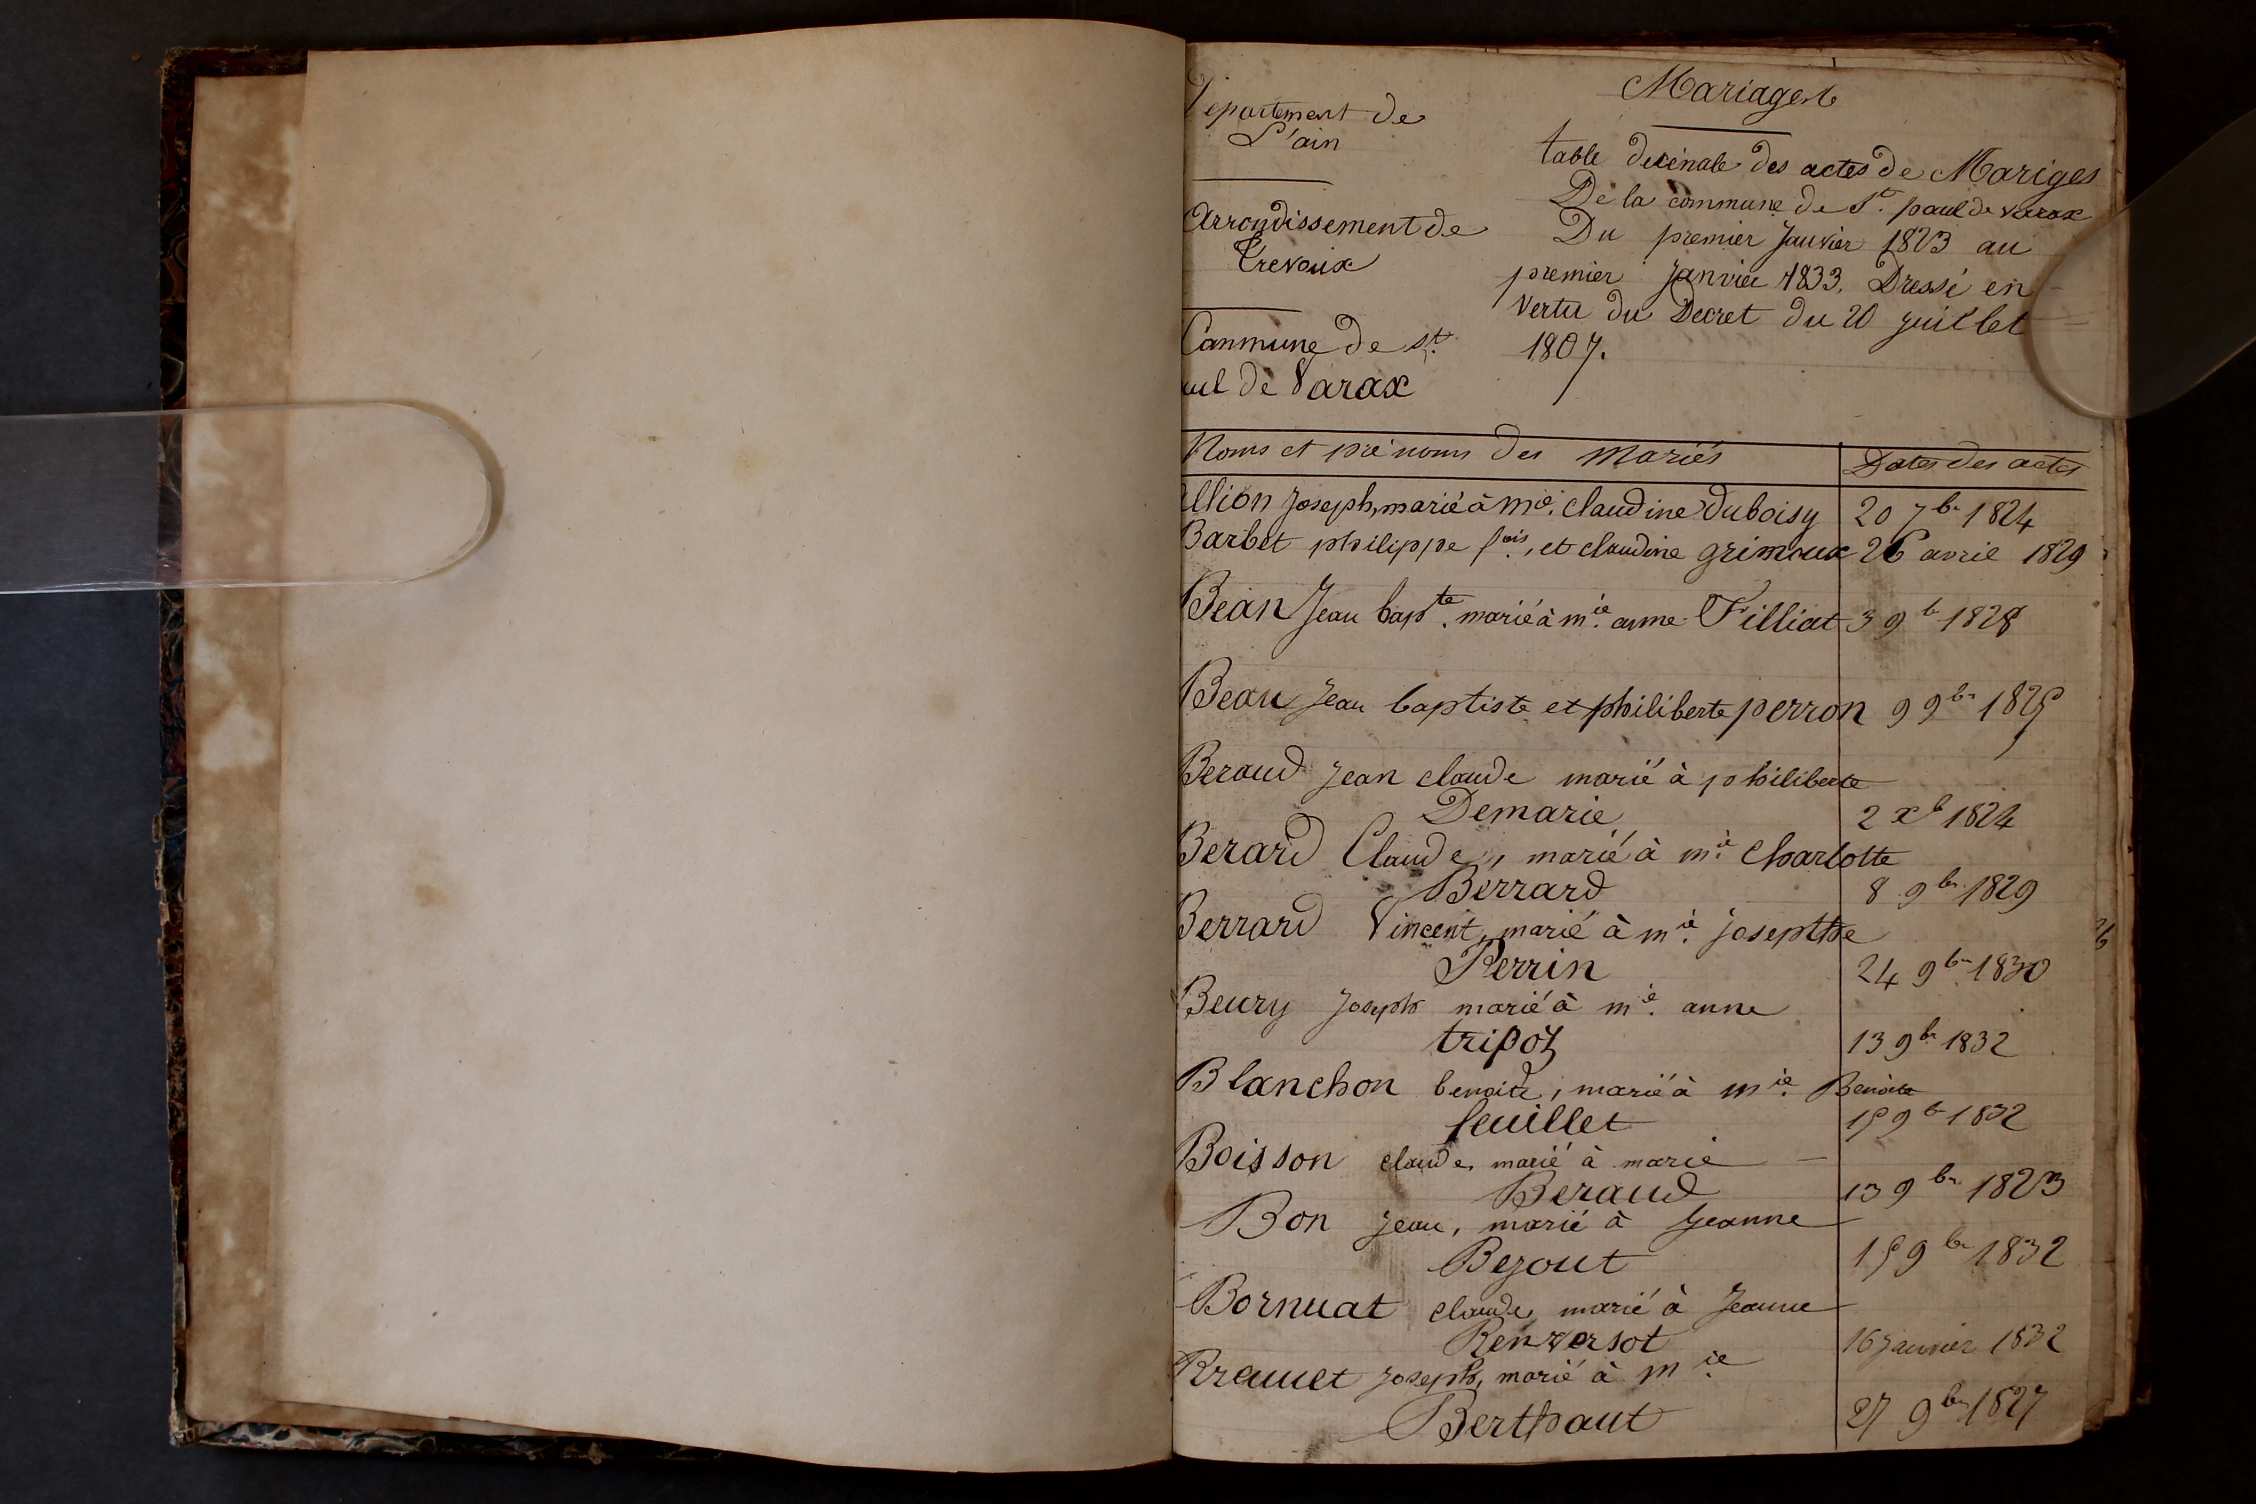 Departement de
L'ain
Arrondissement de
Trevoux
Commune de St.
aul de Varax
Mariages
table decénale des actes de Mariges
De la commune de St. paul de varax
Du premier Janvier 1823 au
premier Janvier 1833. Dressé en
vertu du Decret du 20 juillet
1807.
Noms et prénoms des Mariés Dates des actes
Allion Joseph, marié à mie. claudine Duboisy 20 7br 1824
Barbet philippe fois, et claudine grimoux 26 avril 1829
Bean Jean bapte. marié à mie. anne Filliat 3 9b 1828
Beau Jean baptiste et philiberte perron 9 9br 1825
Beraud Jean claude marié à philiberte
Demarie 2 xb 1824
Berard Claude, marié à mie Charlotte
Berrard 8 9br 1829
Berrard Vincent, marié à mie. Josepthe
Perrin 24 9br 1830
Beury Joseph marié à mie. anne
tripoz 13 9br 1832
Blanchon benoite, marié à mie. Benoite
feuillet 15 9b 1832
Boisson claude, marié à marie
Beraud 13 9br 1823
Bon Jean, marié à Jeanne
Bezout 15 9br 1832
Bornuat claude, marié à Jeanne
Renversot 16 Janvier 1832
Joseph, marié à mie
Berthaut 27 9br 1827